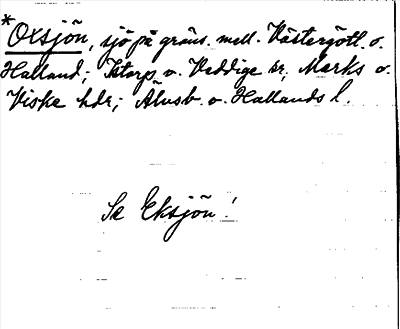 *Oxsjön, sjö på gräns. mell. Västergötl. o.
Halland; Istorp o. Veddige sr, Marks o.
Viske hdr; Älvsb. o. Hallands l.
Se Eksjön!